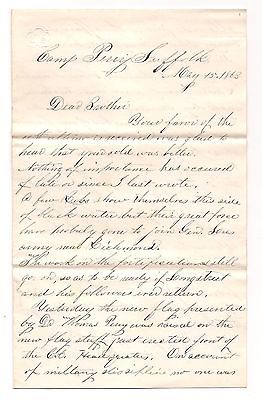 Camp Perry Suffolk
May 15. 1863
Dear Brother
Your favor of the
received was glad to
hear that you were better.
Nothing of importance has occured
of late or since I last wrote.
A few Rebs show themselves this side
of black water but their great force
have probably gone to join Gen. Lees
army near Richmond.
The work on the fortifications still
go on, so as to be ready if Longstreet
and his followers ever return.
Yesterday the new flag presented
by Dr Thomas Perry was raised on the
new flag staff just erected front of
the Col. Headquarters. On account
of military discipline no one was